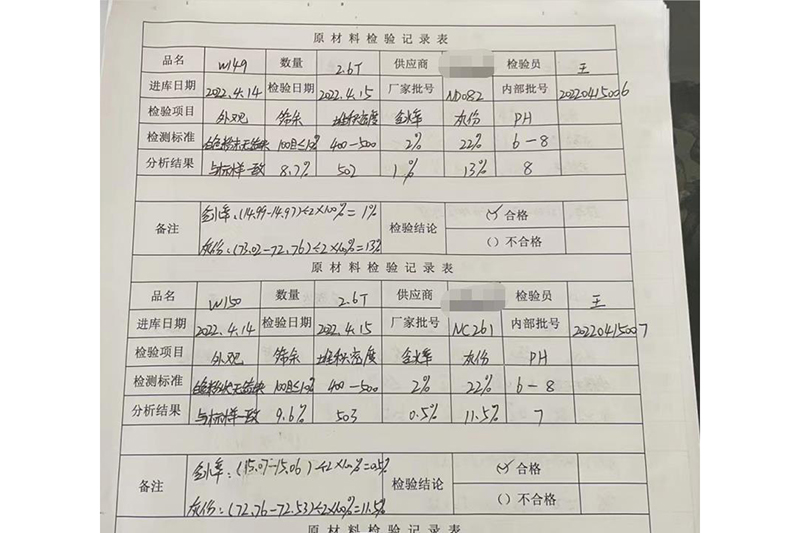 原材料检验记录表
品名 W149 数量 2.6T 供应商 检验员 王
进库日期 2022.4.14 检验日期 2022.4.15 厂家批号 ND082 内部批号 20220415006
检验项目 外观 筛余 堆积密度 含水率 灰份 PH
检测标准 白色粉末无结块 100目≤10% 400-500 2% 22% 6-8
分析结果 与标样一致 8.7% 502 1% 13% 8
备注 含水率:(14.99-14.97)÷2×100%=1% 检验结论 (✓)合格
灰份:(73.02-72.76)÷2×100%=13% ()不合格
原材料检验记录表
品名 W150 数量 2.6T 供应商 检验员 王
进库日期 2022.4.14 检验日期 2022.4.15 厂家批号 NC261 内部批号 20220415007
检验项目 外观 筛余 堆积密度 含水率 灰份 PH
检测标准 白色粉状无结块 100目≤10% 400-500 2% 22% 6-8
分析结果 与标样一致 9.6% 503 0.5% 11.5% 7
备注 含水率:(15.07-15.06)÷2×100%=0.5% 检验结论 (✓)合格
灰份:(72.76-72.53)÷2×100%=11.5% ()不合格
原材料检验记录表